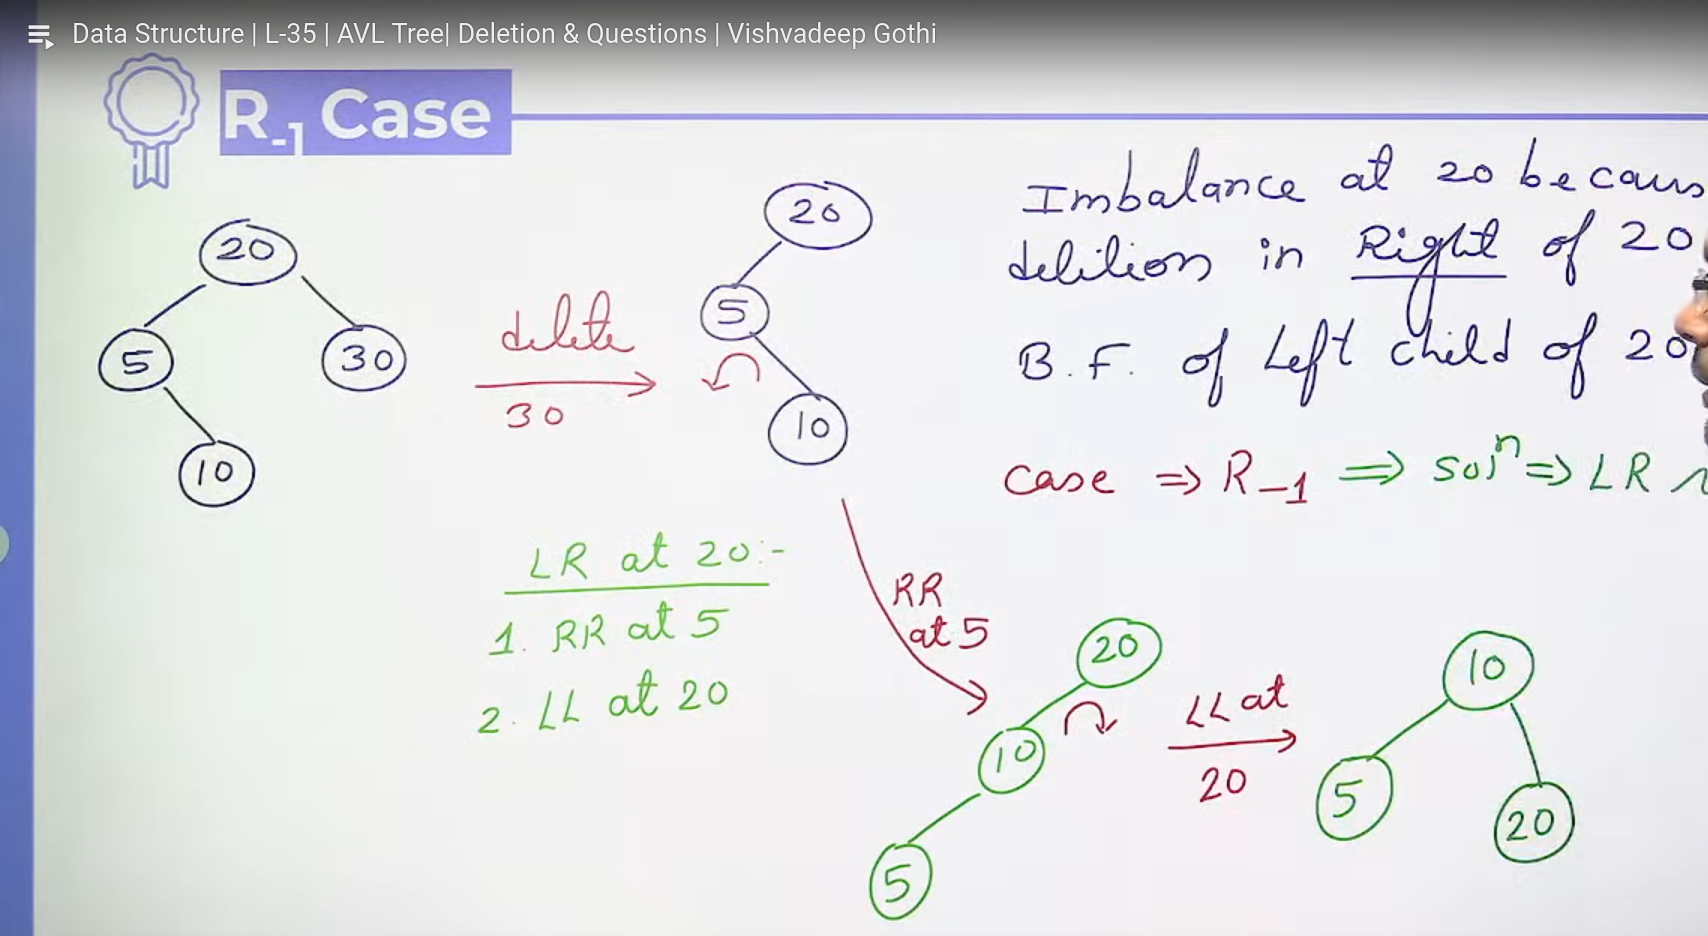 Data Structure | L-35 | AVL Tree| Deletion & Questions | Vishvadeep Gothi
R-1 Case
20
5
30
10
delete
30
20
5
10
Imbalance at 20 becaus
delition in Right of 20
B.F. of Left child of 20
case => R-1 => solⁿ => LR
LR at 20:-
1. RR at 5
2. LL at 20
RR
at 5
20
10
5
LL at
20
10
5
20